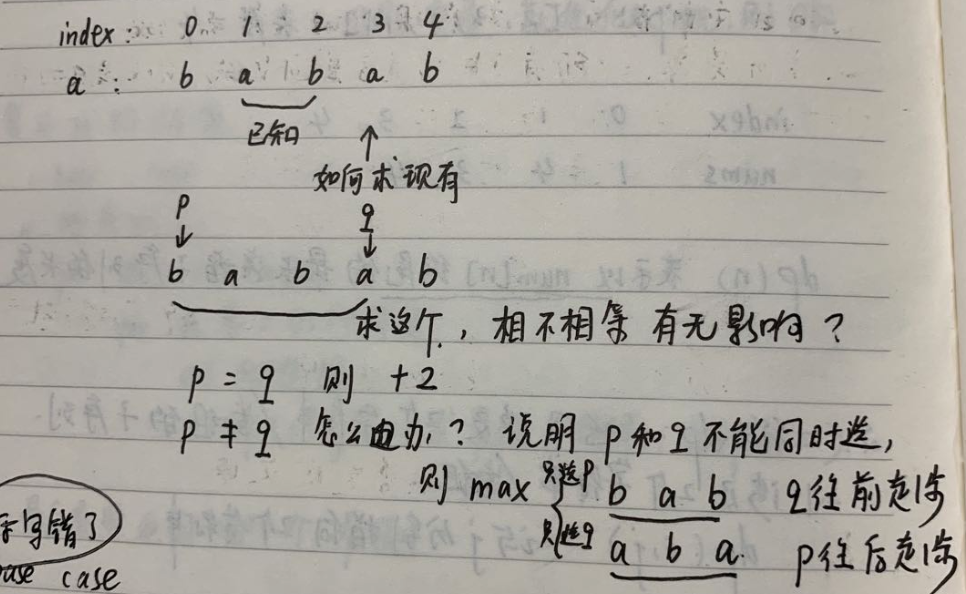 index: 0 1 2 3 4
a: b a b a b
已知
如何求现有
p q
b a b a b
求这个, 相不相等 有无影响?
p = q 则 +2
p ≠ q 怎么办? 说明 p和q不能同时选,
则 max 只选p b a b q往前走1步
只选q a b a p往后走1步
写错了
case